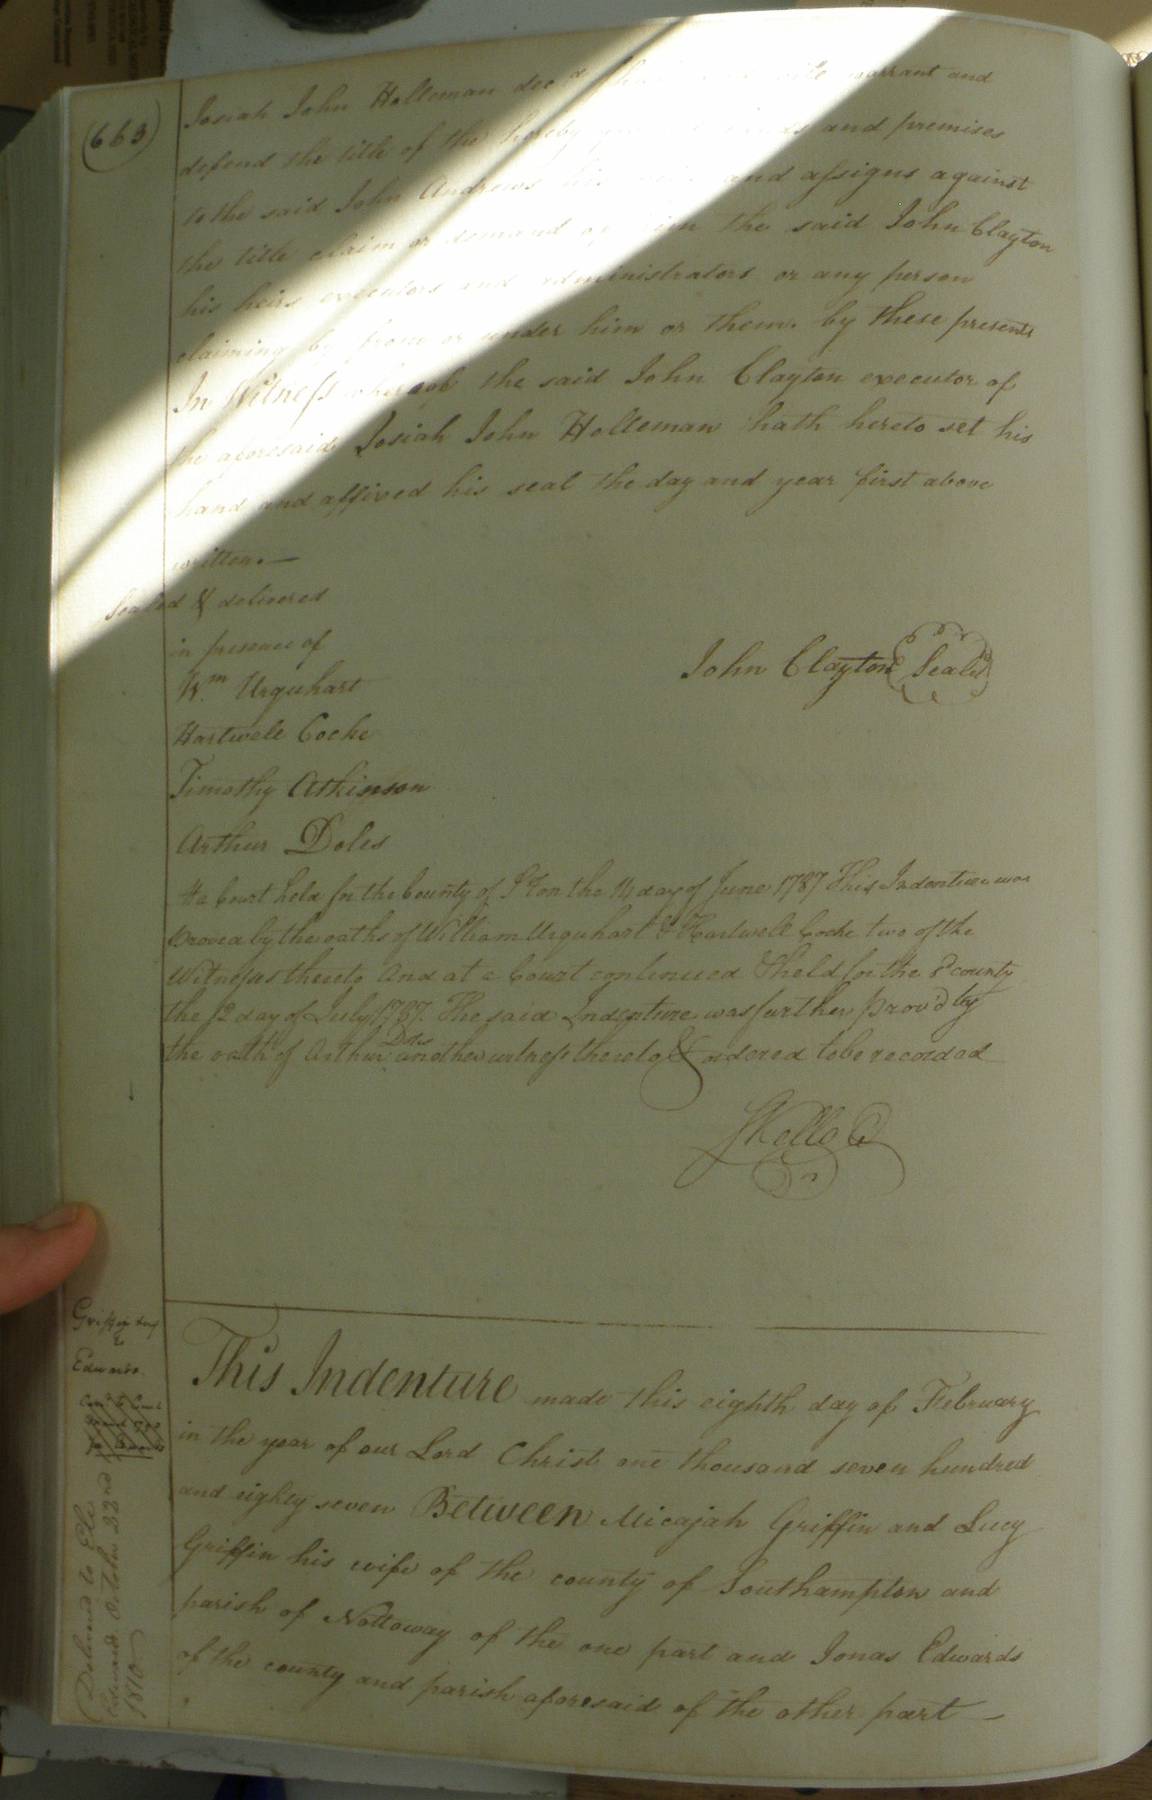 (663)
Josiah John Holleman decd warrant and
defend the title of the hereby and premises
to the said John Andrews his and assigns against
the title claim or demand of him the said John Clayton
his heirs executors and administrators or any person
claiming by from or under him or them. by these presents
In Witness whereof the said John Clayton executor of
the aforesaid Josiah John Holleman hath hereto set his
hand and affixed his seal the day and year first above
written.—
Sealed & delivered
in presence of
Wm Urquhart
John Clayton Seal
Hartwell Cocke
Timothy Atkinson
Arthur Doles
At a Court held for the County of S°ton the 14 day of June 1787 This Indenture was
proved by the oaths of William Urquhart & Hartwell Cocke two of the
Witnesses thereto And at a Court continued & held for the sd county
the 12 day of July 1787. The said Indenture was further prov'd by
the oath of Arthur Doles another witness thereto & ordered to be recorded
Griffin &c
to
Edwards
This Indenture made this eighth day of February
in the year of our Lord Christ one thousand seven hundred
and eighty seven Between Micajah Griffin and Lucy
Griffin his wife of the county of Southampton and
parish of Nottoway of the one part and Jonas Edwards
of the county and parish aforesaid of the other part —
Delivered to
Edwards October 22nd
1810